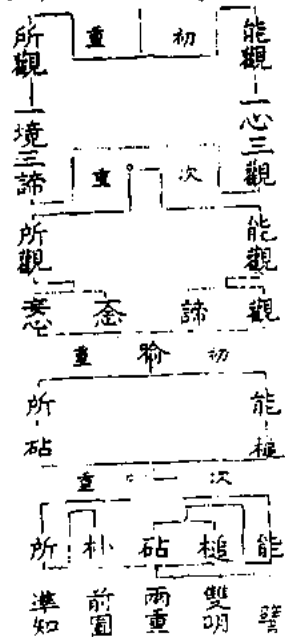 能觀
初重
所觀
一心三觀
一境三諦
次重
能觀
所觀
觀
諦
初喻重
能槌
所砧
次重
能
槌
砧
朴
所
譬
雙明
兩重
前圖
準知